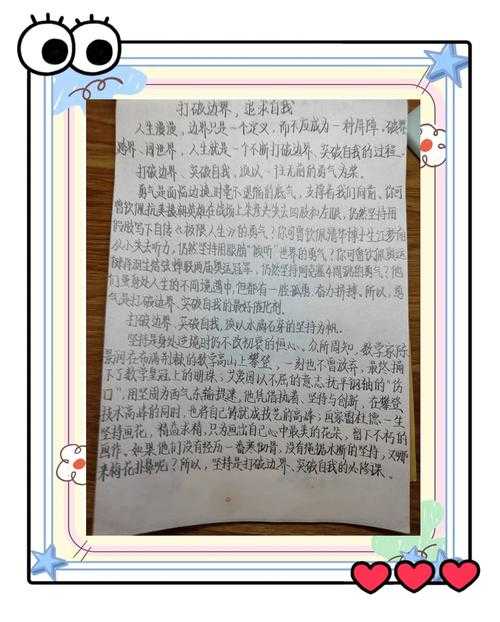 打破边界，追求自我
人生漫漫，边界只是一个定义，而不应成为一种屏障，破界
跨界、闯世界，人生就是一个不断打破边界、突破自我的过程。
打破边界、突破自我，须以一往无前的勇气为桨。
勇气是面临边境时毫不退缩的底气，支撑着我们向前。你可
曾钦佩抗美援朝英雄在战场上朱彦夫失去四肢和左眼，仍然坚持用
残肢写下自传《极限人生》的勇气？你可曾钦佩清华博士生江梦南
从小失去听力，仍然坚持用眼睛“倾听”世界的勇气？你可曾钦佩奥运
羽生结弦蝉联两届奥运冠军，仍然坚持阿克塞尔4周跳的勇气？他
们虽身处人生的不同境遇中，但都有一腔孤勇，奋力拼搏。所以，勇
气是打破边界、突破自我的最好催化剂。
打破边界、突破自我，须以水滴石穿的坚持为帆。
坚持是身处逆境时仍不改初衷的恒心。众所周知，数学家陈
景润在布满荆棘的数学高山上攀登，一刻也不曾放弃，最终摘
下了数学皇冠上的明珠；艾爱国以不屈的意志抚平钢铀的“伤
口”，用坚固为西气东输提速，他凭借执着、坚持与创新，在攀登
技术高峰的同时，也将自己铸就成技艺的高峰；画家雷杜德一生
坚持画花，精益求精，只为画出自己心中最美的花朵，留下不朽的
画作。如果他们没有经历一番寒彻骨，没有绳锯木断的坚持，又哪
来梅花扑鼻呢？所以，坚持是打破边界、突破自我的必修课。